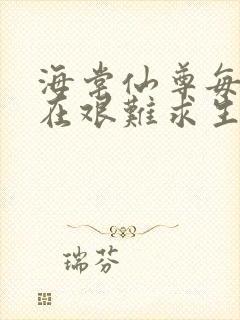 海棠仙尊每
在艰难求生
瑞芬